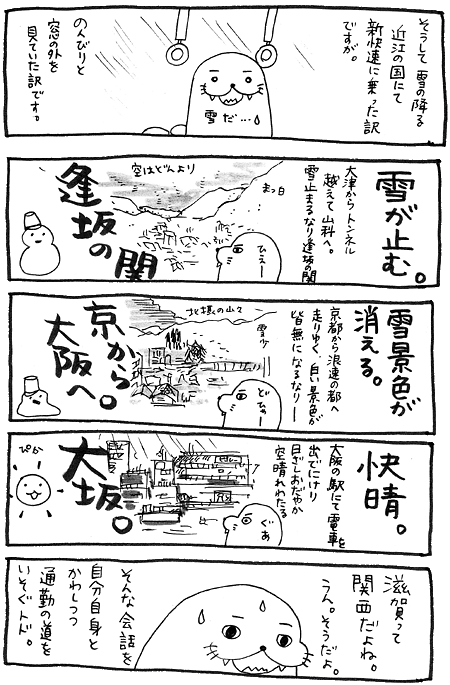 そうして雪の降る
近江の国にて
新快速に乗った訳
ですが。
雪だ…。
のんびりと
窓の外を
見ていた訳です。
雪が止む。
大津からトンネル
越えて山科へ。
雪止まるなり逢坂の関
まっ白
ひえー
空はどんより
逢坂の
関
雪景色が
消える。
京都から浪速の都へ
走りゆく、白い景色が
皆無になるなりー
雪少
どひゃー
北摂の山々
京から
大阪へ。
快晴。
大阪の駅にて電車を
出でにけり
日ざしおだやか
空晴れわたる
ぐあ
大坂。
ぴか
滋賀って
関西だよね。
うん。そうだよ。
そんな会話を
自分自身と
かわしつつ
通勤の道を
いそぐトド。